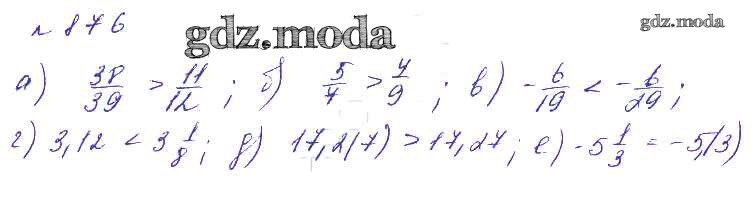 № 876
gdz.moda
gdz.moda
а) 38/39 > 11/12 ; б) 5/7 > 4/9 ; в) -6/19 < -6/29 ;
г) 3,12 < 3 1/8 ; д) 17,2(7) > 17,27 ; е) -5 1/3 = -5,(3)